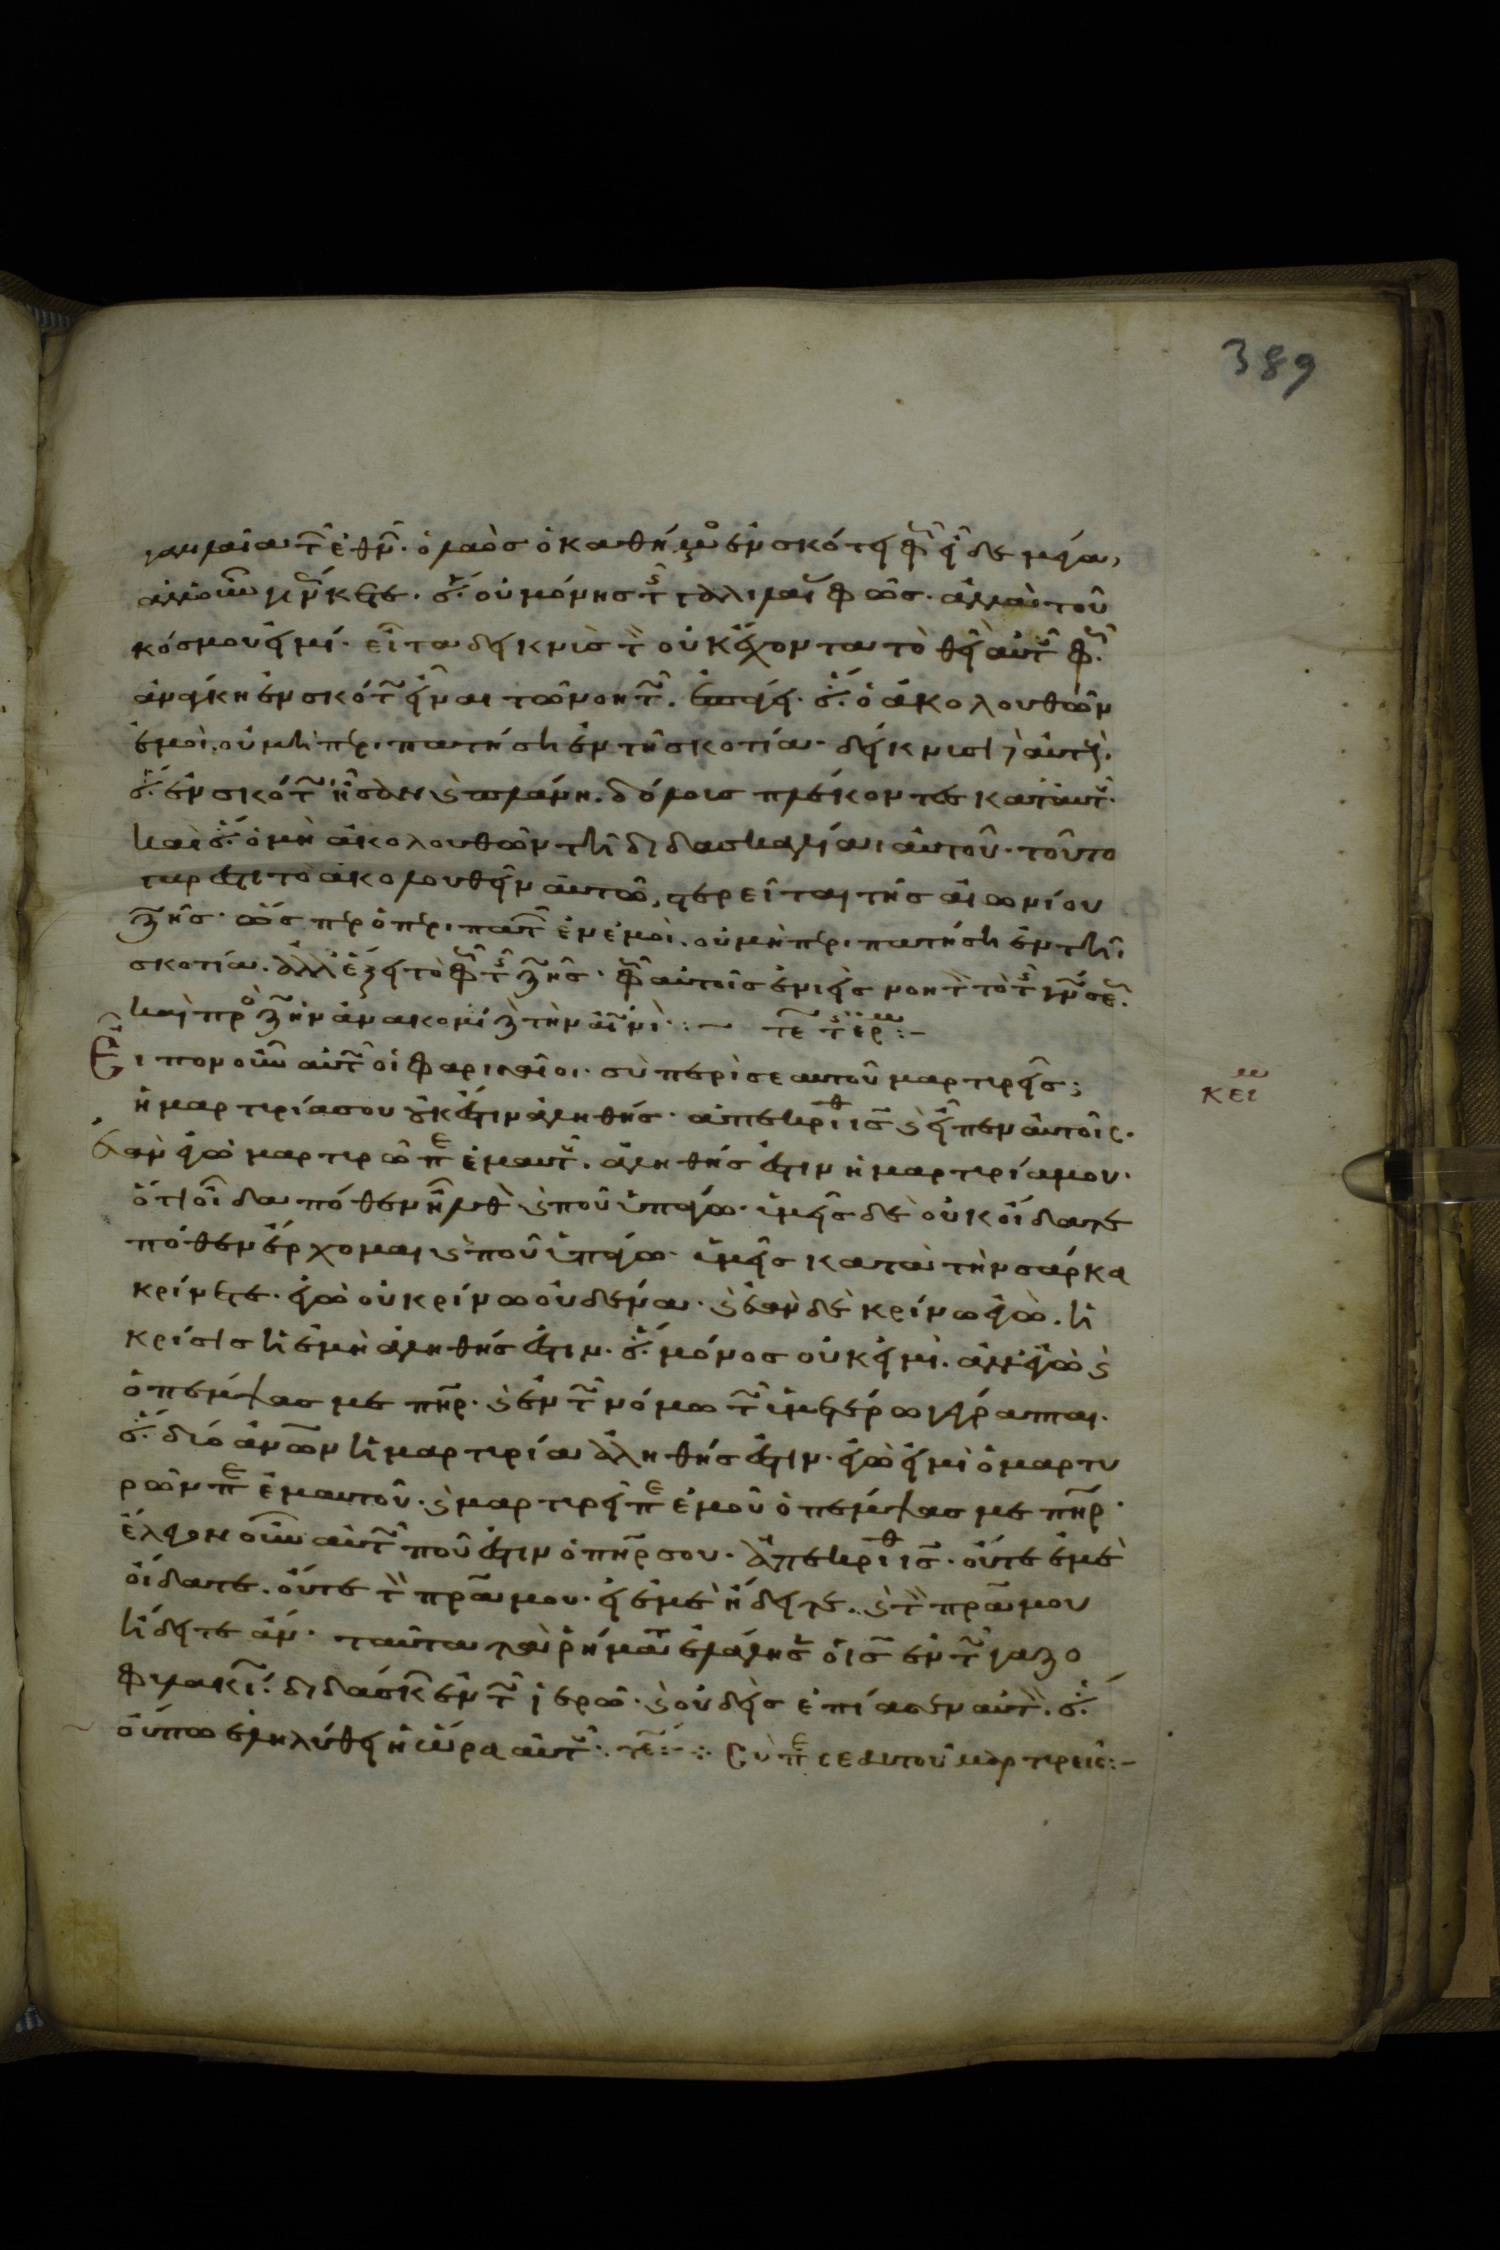 389
γαλιλαία τῶν ἐθνῶν· ὁ λαὸς ὁ καθήμενος ἐν σκότει φῶς εἶδε μέγα,
κόσμου εἰμί· εἶτα δείκνυσι τοὺς οὐκ ἔχοντας τὸ θεῖον αὐτοῦ φῶς·
ἀνάγκη ἐν σκότει εἶναι τῶ νοητῶ. ὅτι ὁ ἀκολουθῶν
ἐμοὶ. οὐ μὴ περιπατήση ἐν τῆ σκοτία· δείκνυσι
ὅτι ἐν σκότει ἦσαν καὶ πλάνη. δόλους πλέκοντες κατ' αὐτοῦ·
καὶ ὅτι ὁ μὴ ἀκολουθῶν τῆ διδασκαλίαι αὐτοῦ· τοῦτο
γάρ ἐστι τὸ ἀκολουθεῖν αὐτῶ, στερεῖται τῆς αἰωνίου
ζωῆς· ὥσπερ ὁ περιπατῶν ἐν ἐμοὶ. οὐ μὴ περιπατήση ἐν τῆ
σκοτία. ἀλλ' ἕξει τὸ φῶς τῆς ζωῆς·
καὶ πρὸς ζωὴν
κει
Εἶπον οὖν αὐτῶ οἱ φαρισαῖοι· σὺ περὶ σεαυτοῦ μαρτυρεῖς;
ἡ μαρτυρία σου οὐκ ἔστιν ἀληθής· ἀπεκρίθη ις καὶ εἶπεν αὐτοῖς·
ἐὰν ἐγὼ μαρτυρῶ περὶ ἐμαυτοῦ. ἀληθής ἐστιν ἡ μαρτυρία μου·
ὅτι οἶδα πόθεν ἦλθον καὶ ποῦ ὑπάγω· ὑμεῖς δὲ οὐκ οἴδατε
πόθεν ἔρχομαι καὶ ποῦ ὑπάγω· ὑμεῖς κατὰ τὴν σάρκα
κρίνετε· ἐγὼ οὐ κρίνω οὐδένα· καὶ ἐὰν δὲ κρίνω ἐγὼ. ἡ
κρίσις ἡ ἐμὴ ἀληθής ἐστιν· ὅτι μόνος οὐκ εἰμὶ. ἀλλ' ἐγὼ καὶ
ὁ πέμψας με πηρ· καὶ ἐν τῶ νόμω τῶ ὑμετέρω γέγραπται·
ὅτι δύο ἀνων ἡ μαρτυρία ἀληθής ἐστιν· ἐγὼ εἰμὶ ὁ μαρτυ
ρῶν περὶ ἐμαυτοῦ· καὶ μαρτυρεῖ περὶ ἐμοῦ ὁ πέμψας με πηρ·
ἔλεγον οὖν αὐτῶ ποῦ ἐστιν ὁ πηρ σου· ἀπεκρίθη ις· οὔτε ἐμὲ
οἴδατε. οὔτε τὸν πρα μου· εἰ ἐμὲ ἤδειτε. καὶ τὸν πρα μου
ἤδειτε ἄν· ταῦτα τὰ ῥήματα ἐλάλησεν ὁ ις ἐν τῶ γαζο
φυλακίω. διδάσκων ἐν τῶ ἱερῶ· καὶ οὐδεὶς ἐπίασεν αὐτὸν. ὅτι
οὔπω ἐληλύθει ἡ ὥρα αὐτοῦ· Σὺ περὶ σεαυτοῦ μαρτυρεῖς:-